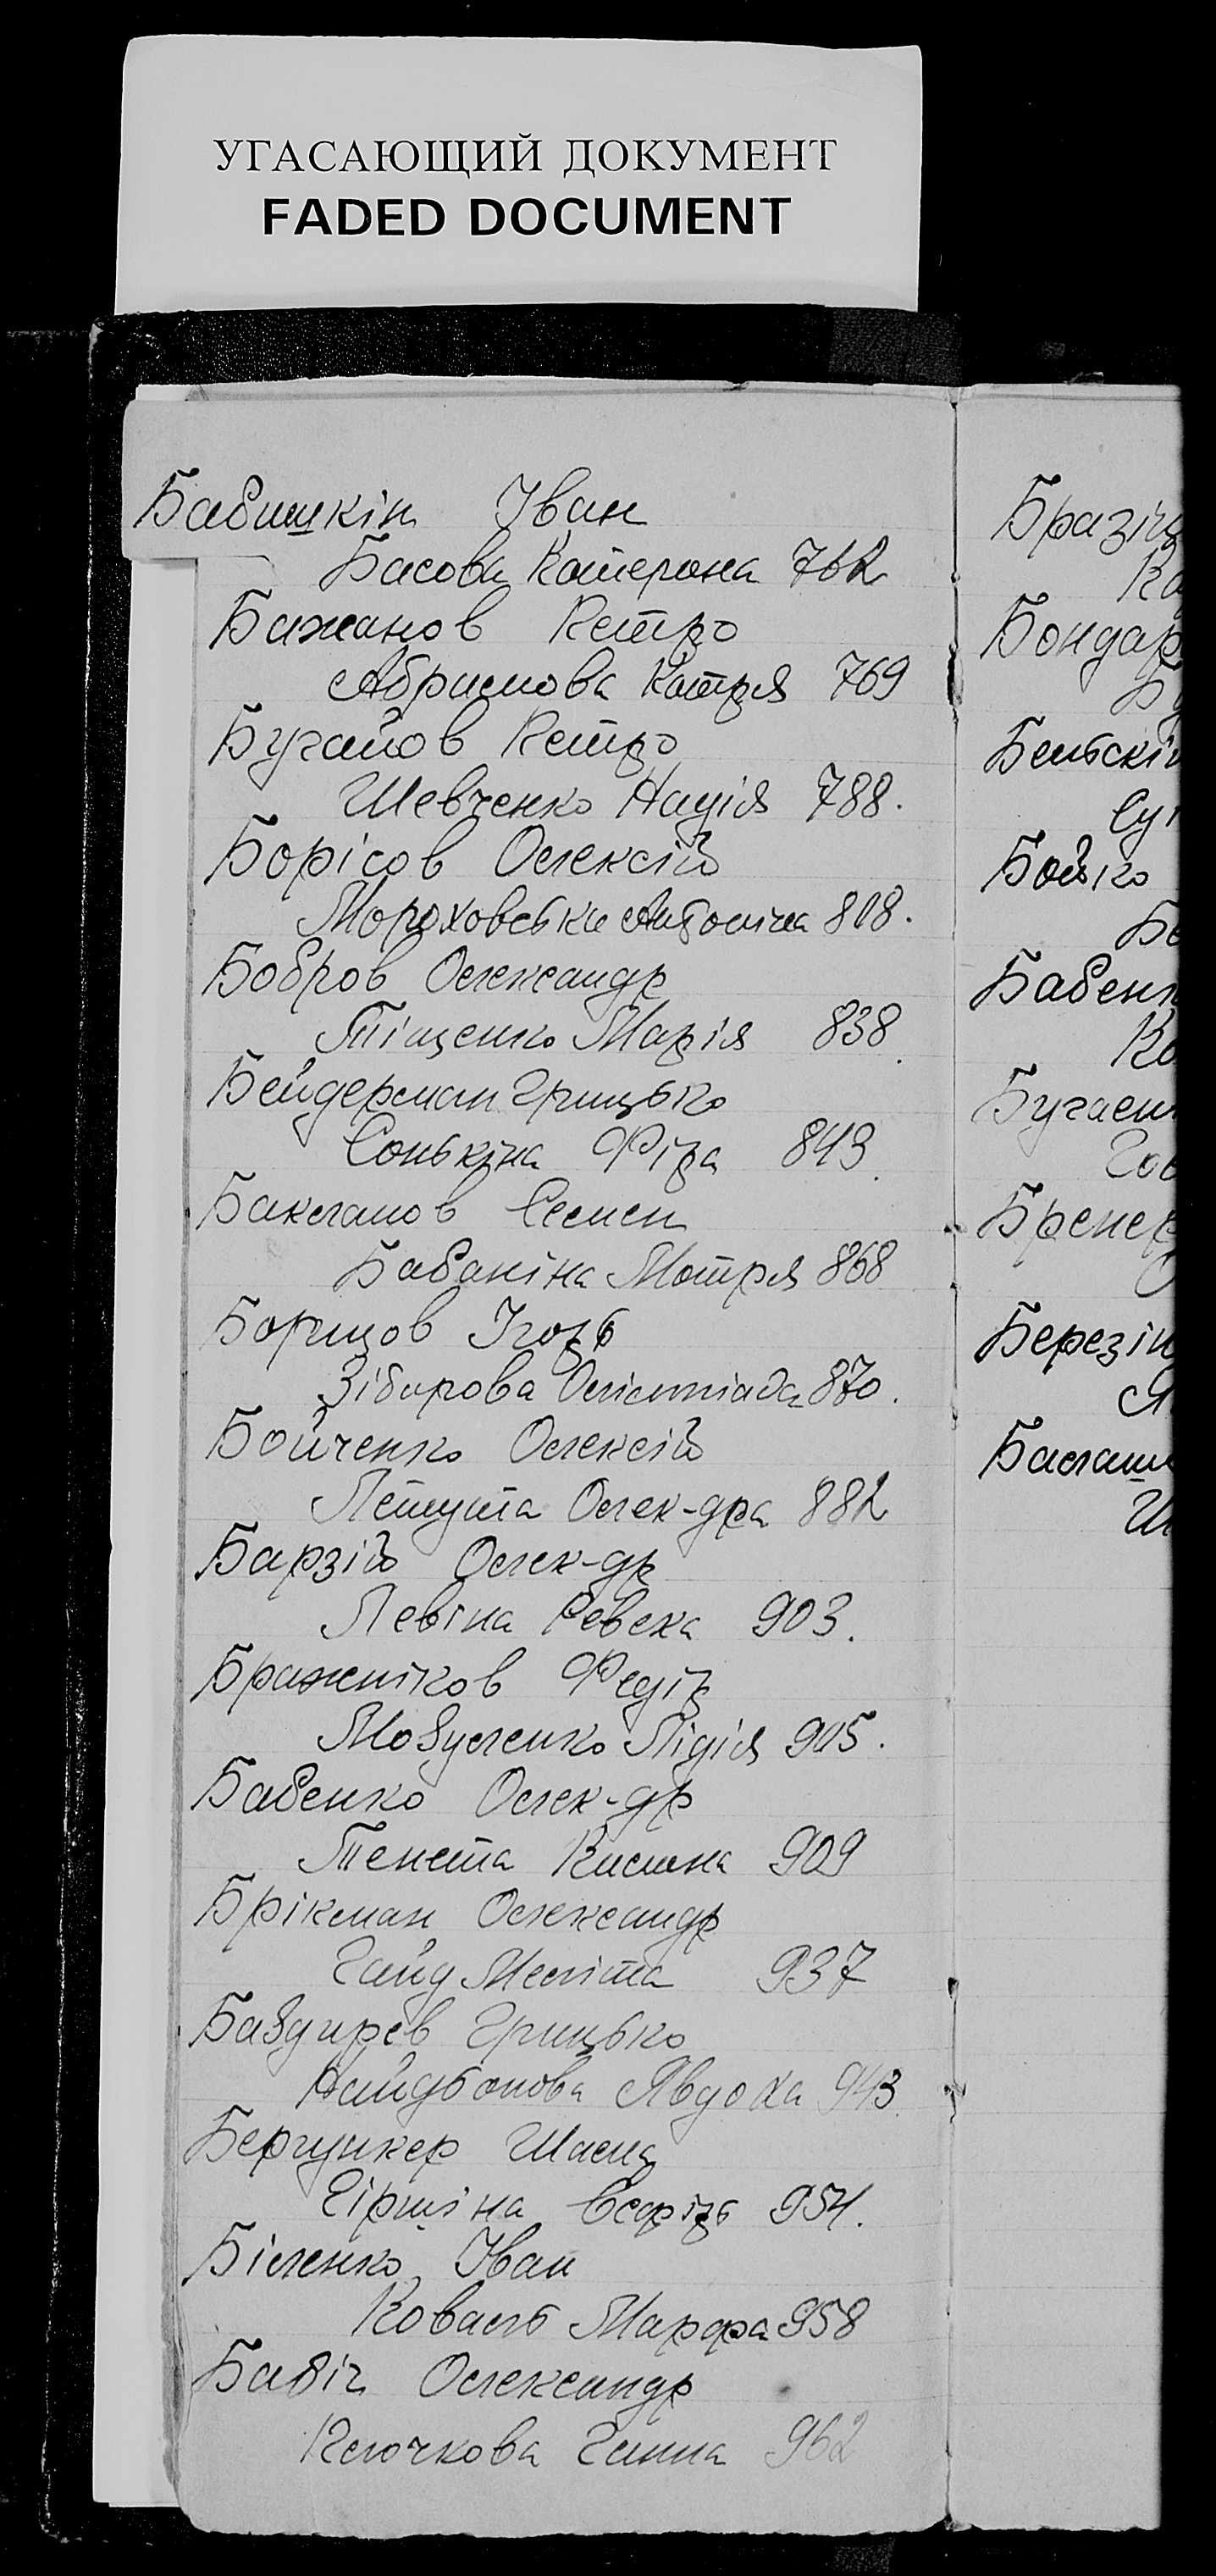 УГАСАЮЩИЙ ДОКУМЕНТ
FADED DOCUMENT
Бабишкін Іван
Басова Катерина 762
Бажанов Петро
Абрамова Катря 769
Бугайов Петро
Шевченко Надія 788.
Борісов Олексій
Мороховська Антоніна 808.
Бобров Олександр
Тіщенко Марія 838.
Бейдерман Грицько
Сонькіна Фіра 843.
Бакланов Семен
Бабаніна Мотря 868
Борщов Ігорь
Зібарова Олімпіада 870.
Бойченко Олексій
Петута Олек-дра 882
Барзій Олек-др
Левіна Ревека 903.
Бражніков Федір
Мовуленко Лідія 905.
Бабенко Олек-др
Тенета 909
Брікман Олександр
Гайд Меліта 937
Баздирєв Грицько
Найдьонова Явдоха 943.
Бергункер
Гіршіна Есфірь 954.
Біленко Іван
Коваль Марфа 958
Бабіч Олександр
Клочкова Ганна 962
Бразіц
Ка
Бондар
Бу
Бельскі
Суг
Бойко
Бе
Бабенк
Ко
Бугаєн
Гов
Бренер
Березін
Балаш